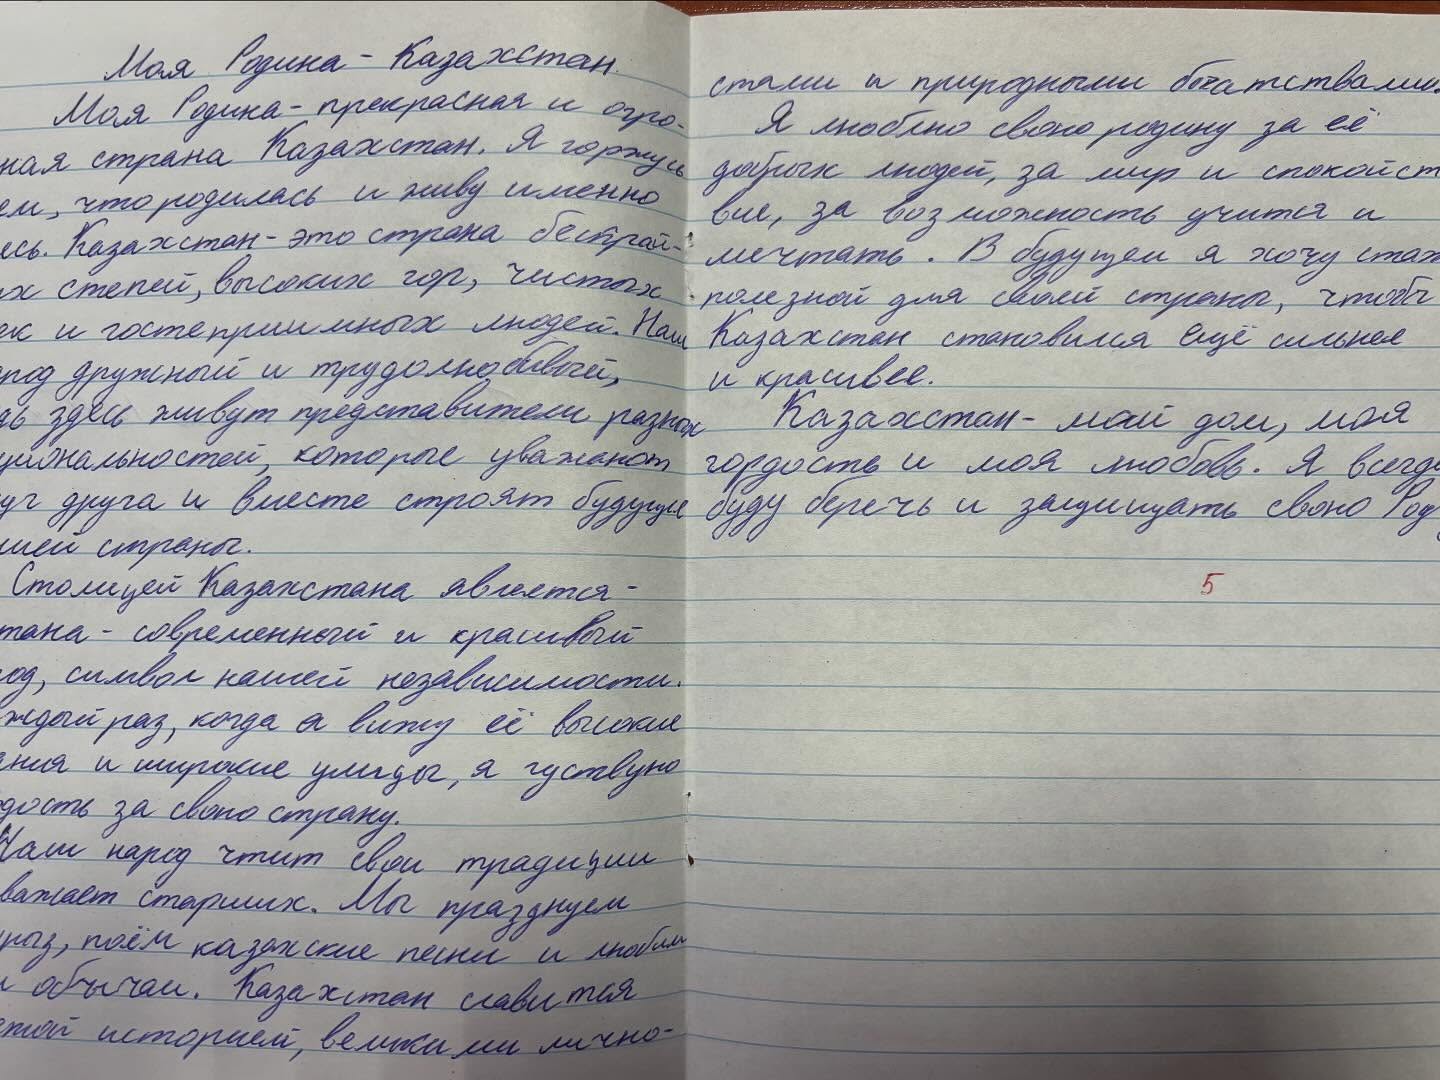 Моя Родина - Казахстан.
Моя Родина - прекрасная и огро-
ная страна Казахстан. Я горжусь
ем, что родилась и живу именно
есь. Казахстан - это страна бескрай-
их степей, высоких гор, чистых
ек и гостеприимных людей. Наш
арод дружный и трудолюбивый,
дь здесь живут представители разных
циональностей, которые уважают
уг друга и вместе строят будущее
шей страны.
Столицей Казахстана является -
тана - современный и красивый
од, символ нашей независимости.
ждый раз, когда я вижу её высокие
ания и широкие улицы, я чуствую
дость за свою страну.
Наш народ чтит свои традиции
важает старших. Мы празднуем
рыз, поём казахские песни и любим
и обычаи. Казахстан славится
атой историей, великими лично-
стями и природными богатствами.
Я люблю свою родину за её
добрых людей, за мир и спокойст
вие, за возможность учится и
мечтать. В будущем я хочу стать
полезной для своей страны, чтобы
Казахстан становился ещё сильнее
и красивее.
Казахстан - мой дом, моя
гордость и моя любовь. Я всегда
буду беречь и защищать свою Род
5